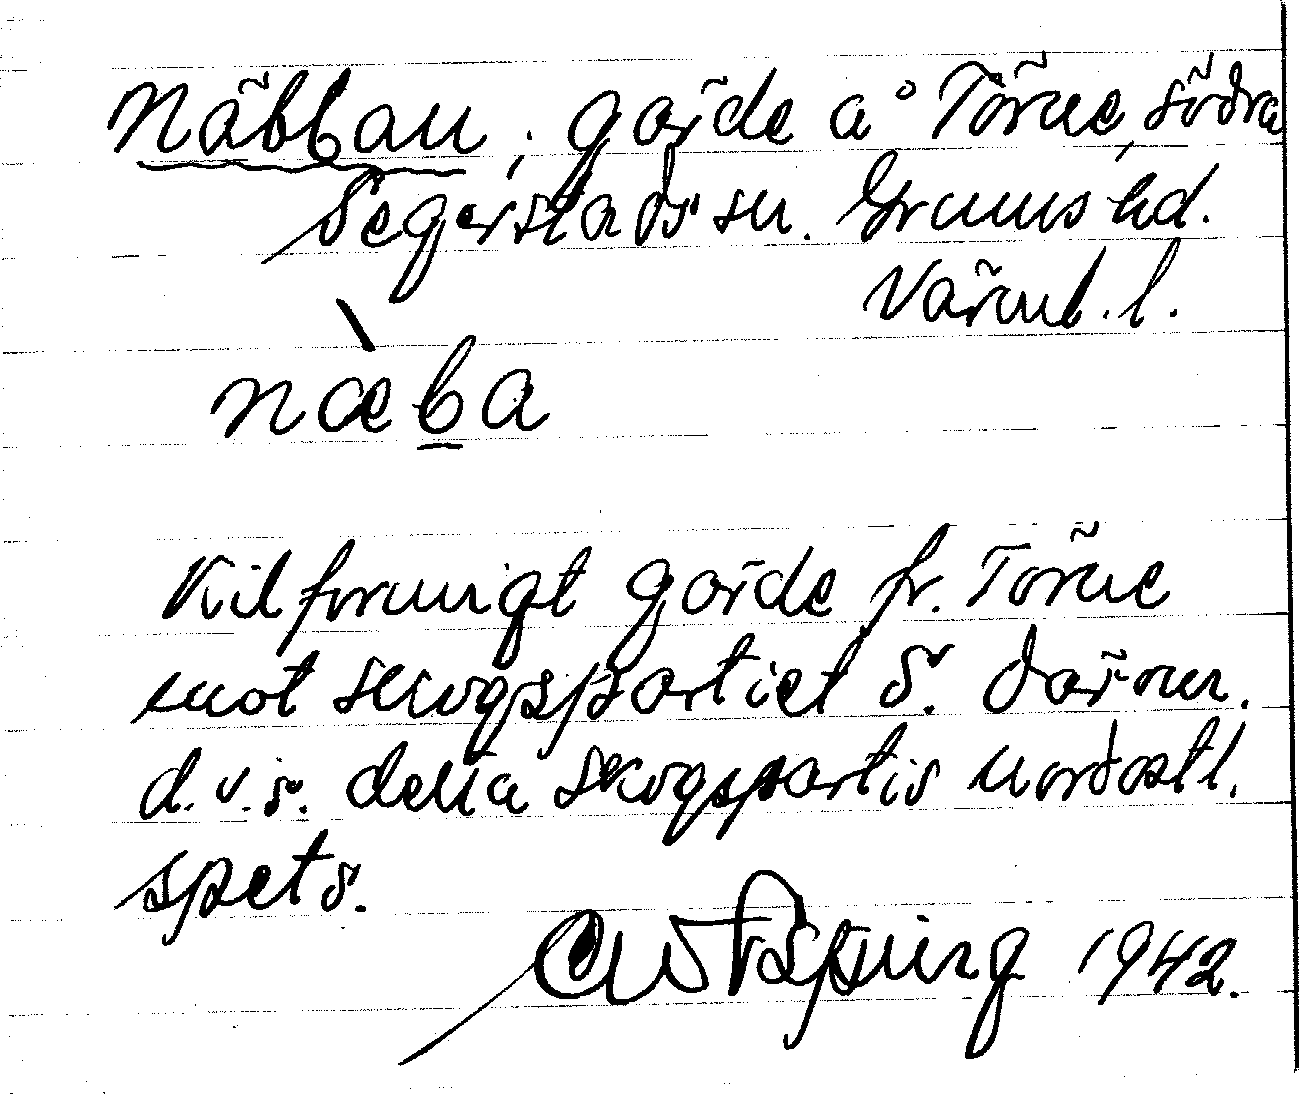 Näbban; gärde å Törne, södra
Segerstads sn. Grums hd.
Värml. l.
næ̀ba
Kilformigt gärde fr. Törne
mot skogspartiet S. därom.
d.v.s. detta skogspartis nordostl.
spets.
1942.